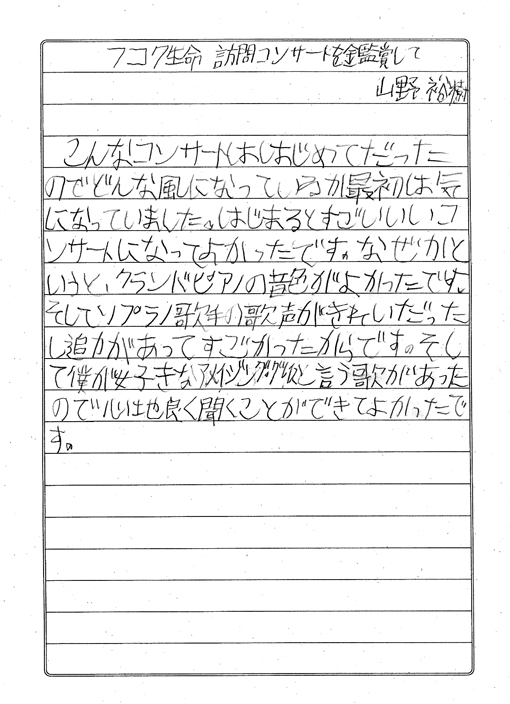 フコク生命 訪問コンサートを鑑賞して
山野 裕樹
こんなコンサートはしはじめてだった
のでどんな風になっているか最初は気
になっていました。はじまるとすごいいいコ
ンサートになってよかったです。なぜかと
いうと、グランドピアノの音色がよかったです。
そしてソプラノ歌手の歌声がきれいだった
し迫力があってすごかったからです。そし
て僕が好きなアメイジンググレイスと言う歌があった
ので心地良く聞くことができてよかったで
す。